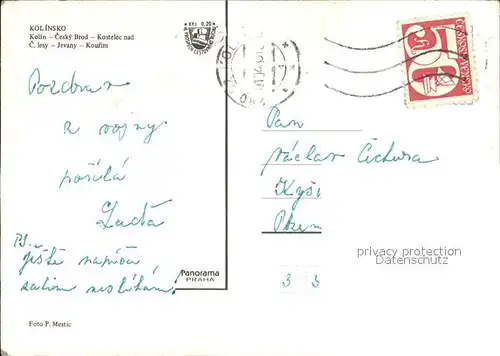 KOLÍNSKO
Kolín – Český Brod – Kostelec nad
Č. lesy – Jevany – Kouřim
Kčs 0,20
Pozdrav
z vojny
posílá
Laďa
PS.
ještě napíšu
zatím neslíbám!
Pan
Václav Čichura
Kyši
Plzeň
3 3
privacy protection
Datenschutz
Panorama
PRAHA
Foto P. Mestic